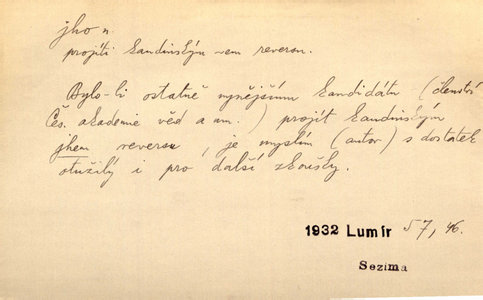 jho n.
projíti kaudinským                reversu.
Bylo-li ostatně nynějšímu kandidátu (členství
Čes. akademie věd a um.) projít kaudinským
jhem reversu, je myslím (autor) s dostatek
stužilý i pro další zkoušky.
1932 Lumír 57, 46.
Sezima